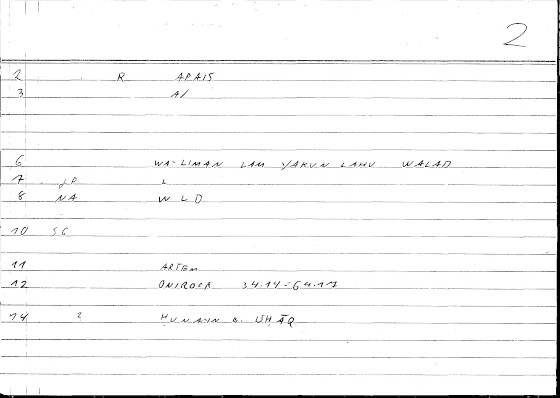 2
2 R APAIS
3 A/
6 WA-LIMAN LAM YAKUN LAHU WALAD
7 LP L
8 NA WLD
10 SG
11 ARTEM
12 ONIROCR 34.14-64.17
14 2 ḤUNAYN B. ISḤĀQ